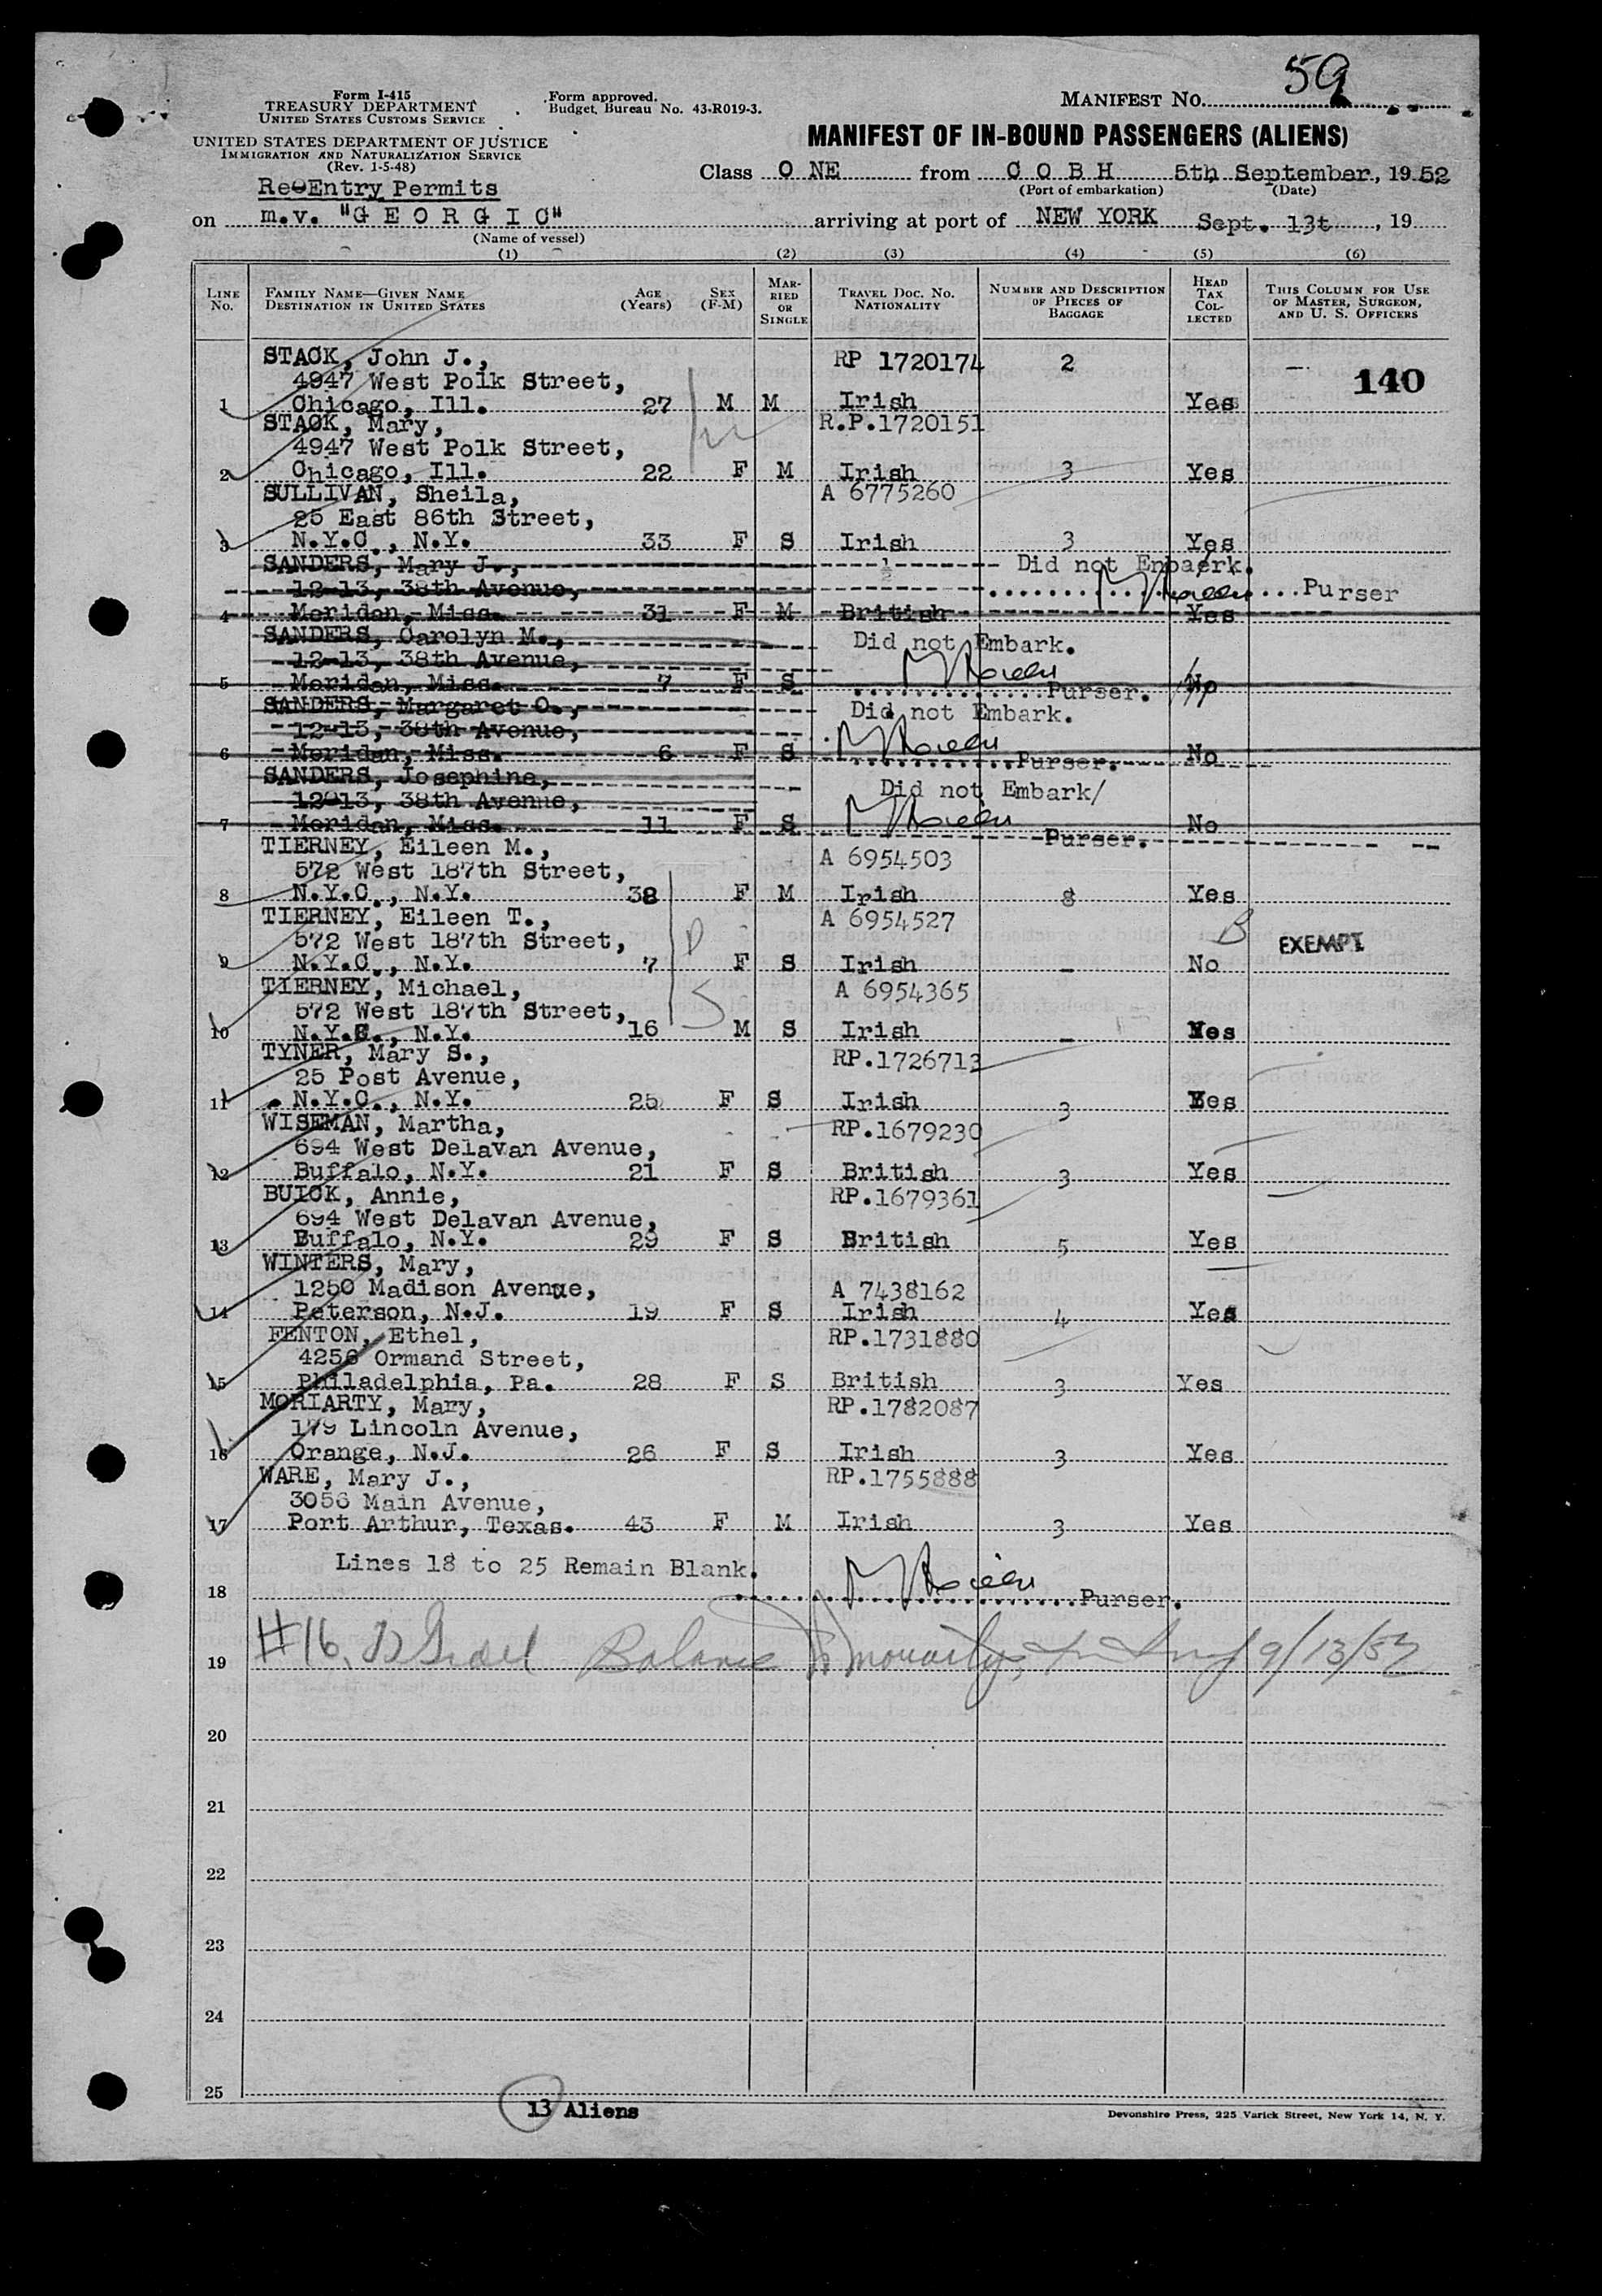 59
Form I-415
TREASURY DEPARTMENT
UNITED STATES CUSTOMS SERVICE
Form approved.
Budget Bureau No. 43-R019-3.
MANIFEST NO.
UNITED STATES DEPARTMENT OF JUSTICE
IMMIGRATION AND NATURALIZATION SERVICE
(Rev. 1-5-48)
MANIFEST OF IN-BOUND PASSENGERS (ALIENS)
Class O NE from C O B H 5th September, 19 52
(Port of embarkation) (Date)
Re-Entry Permits
on m.v. "G E O R G I C" arriving at port of NEW YORK Sept. 13t, 19
(Name of vessel)
(1) (2) (3) (4) (5) (6)
LINE NO. FAMILY NAME—GIVEN NAME DESTINATION IN UNITED STATES AGE (Years) SEX (F-M) MARRIED OR SINGLE TRAVEL DOC. NO. NATIONALITY NUMBER AND DESCRIPTION OF PIECES OF BAGGAGE HEAD TAX COLLECTED THIS COLUMN FOR USE OF MASTER, SURGEON, AND U. S. OFFICERS
STACK, John J., RP 1720174 2
4947 West Polk Street, 140
1 Chicago, Ill. 27 M M Irish Yes
STACK, Mary, R.P.1720151
4947 West Polk Street,
2 Chicago, Ill. 22 F M Irish 3 Yes
SULLIVAN, Sheila, A 6775260
25 East 86th Street,
3 N.Y.C., N.Y. 33 F S Irish 3 Yes
SANDERS, Mary J., Did not Enbaerk.
12-13, 38th Avenue, Purser
4 Meridan, Miss. 31 F M British Yes
SANDERS, Carolyn M., Did not Embark.
12-13, 38th Avenue,
5 Meridan, Miss. 7 F S Purser. No
SANDERS, Margaret O., Did not Embark.
12-13, 38th Avenue,
6 Meridan, Miss. 6 F S Purser. No
SANDERS, Josephine,
12-13, 38th Avenue, Did not Embark/
7 Meridan, Miss. 11 F S Purser. No
TIERNEY, Eileen M., A 6954503
572 West 187th Street,
8 N.Y.C., N.Y. 38 F M Irish 8 Yes
TIERNEY, Eileen T., A 6954527
572 West 187th Street, EXEMPT
9 N.Y.C., N.Y. 7 F S Irish - No
TIERNEY, Michael, A 6954365
572 West 187th Street,
10 N.Y.C., N.Y. 16 M S Irish - Yes
TYNER, Mary S., RP.1726713
25 Post Avenue,
11 N.Y.C., N.Y. 25 F S Irish 3 Yes
WISEMAN, Martha, RP.1679230
694 West Delavan Avenue,
12 Buffalo, N.Y. 21 F S British 3 Yes
BUICK, Annie, RP.1679361
694 West Delavan Avenue,
13 Buffalo, N.Y. 29 F S British 5 Yes
WINTERS, Mary,
1250 Madison Avenue, A 7438162
14 Peterson, N.J. 19 F S Irish 4 Yes
FENTON, Ethel, RP.1731880
4256 Ormand Street,
15 Philadelphia, Pa. 28 F S British 3 Yes
MORIARTY, Mary, RP.1782087
179 Lincoln Avenue,
16 Orange, N.J. 26 F S Irish 3 Yes
WARE, Mary J., RP.1755888
3056 Main Avenue,
17 Port Arthur, Texas. 43 F M Irish 3 Yes
Lines 18 to 25 Remain Blank.
18 Purser.
19 #16. Balance 9/13/52
20
21
22
23
24
25
13 Aliens
Devonshire Press, 225 Varick Street, New York 14, N. Y.